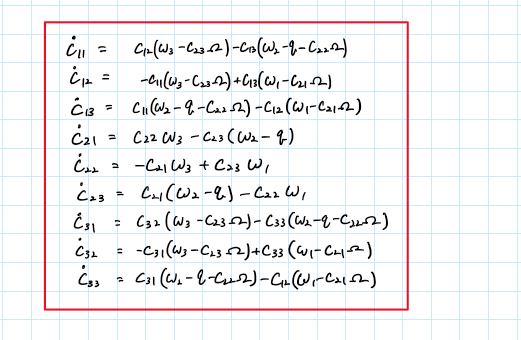 Ċ₁₁ = C₁₂(ω₃ - C₂₃Ω) - C₁₃(ω₂ - q - C₂₂Ω)
Ċ₁₂ = -C₁₁(ω₃ - C₂₃Ω) + C₁₃(ω₁ - C₂₁Ω)
Ċ₁₃ = C₁₁(ω₂ - q - C₂₂Ω) - C₁₂(ω₁ - C₂₁Ω)
Ċ₂₁ = C₂₂ω₃ - C₂₃(ω₂ - q)
Ċ₂₂ = -C₂₁ω₃ + C₂₃ω₁
Ċ₂₃ = C₂₁(ω₂ - q) - C₂₂ω₁
Ċ₃₁ = C₃₂(ω₃ - C₂₃Ω) - C₃₃(ω₂ - q - C₂₂Ω)
Ċ₃₂ = -C₃₁(ω₃ - C₂₃Ω) + C₃₃(ω₁ - C₂₁Ω)
Ċ₃₃ = C₃₁(ω₂ - q - C₂₂Ω) - C₁₂(ω₁ - C₂₁Ω)